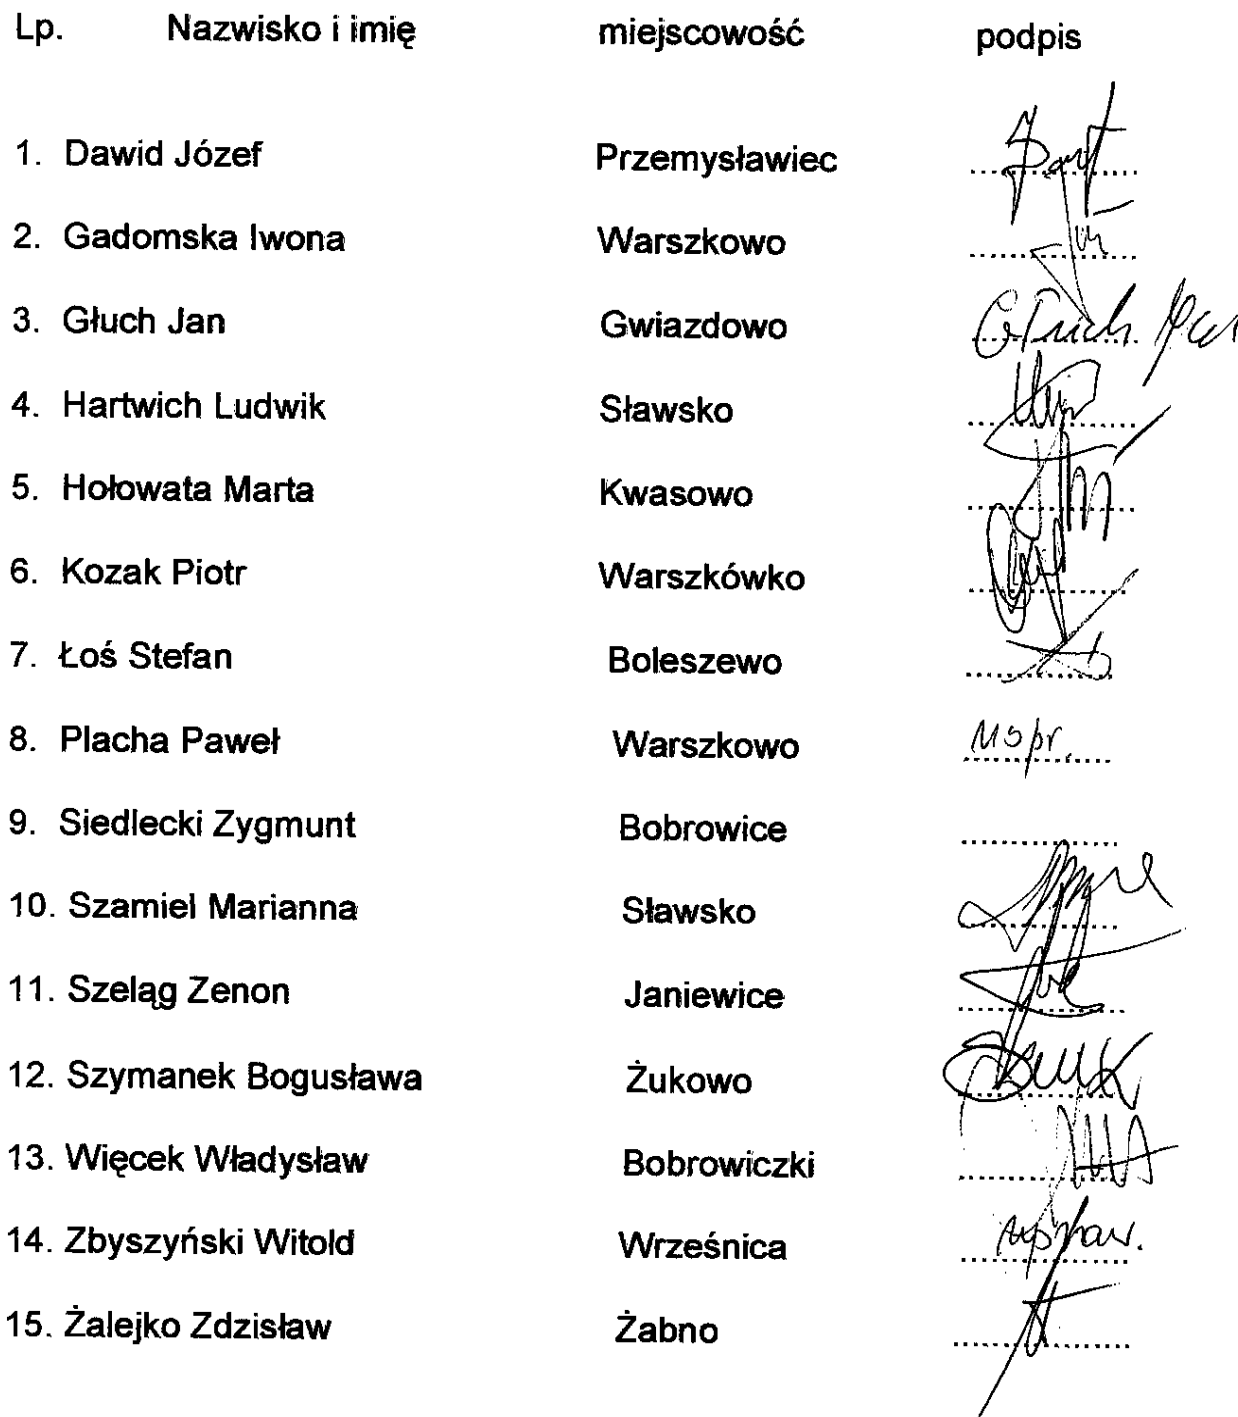 Lp. Nazwisko i imię miejscowość podpis
1. Dawid Józef Przemysławiec
2. Gadomska Iwona Warszkowo
3. Głuch Jan Gwiazdowo Głuch Jan
4. Hartwich Ludwik Sławsko
5. Hołowata Marta Kwasowo
6. Kozak Piotr Warszkówko
7. Łoś Stefan Boleszewo
8. Placha Paweł Warszkowo uspr.
9. Siedlecki Zygmunt Bobrowice
10. Szamiel Marianna Sławsko
11. Szeląg Zenon Janiewice
12. Szymanek Bogusława Żukowo
13. Więcek Władysław Bobrowiczki
14. Zbyszyński Witold Wrześnica
15. Żalejko Zdzisław Żabno